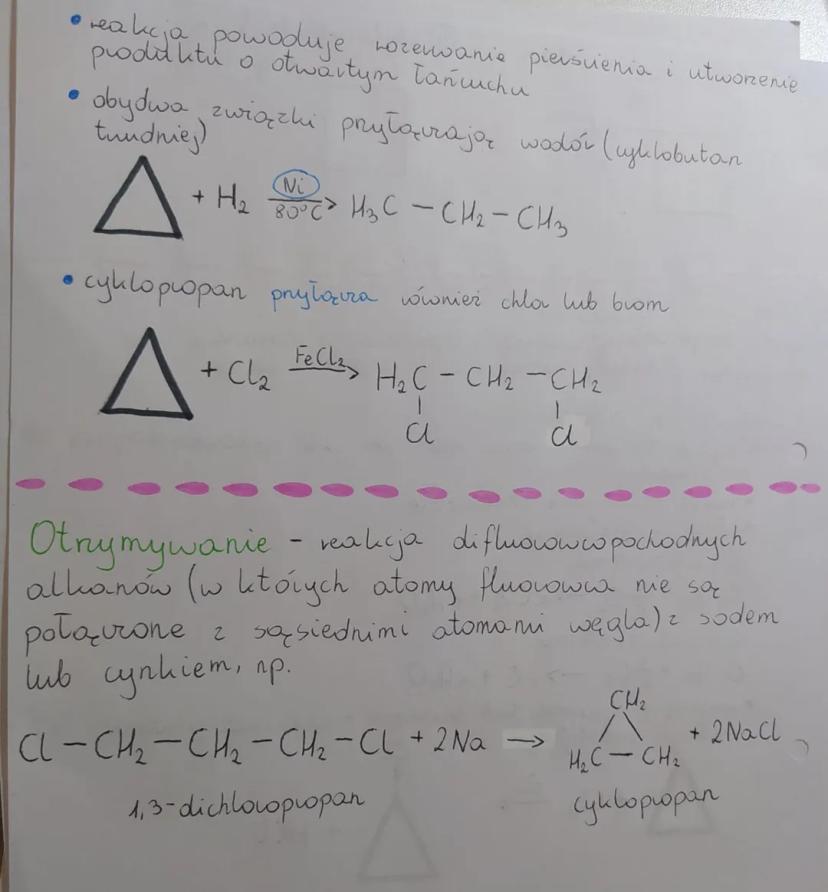 • reakcja powoduje rozerwanie pierścienia i utworzenie
produktu o otwartym łańcuchu
• obydwa związki przyłączają wodór (cyklobutan
trudniej)
+ H₂ Ni 80°C → H₃C – CH₂ – CH₃
• cyklopropan przyłącza również chlor lub brom
+ Cl₂ FeCl₂ → H₂C – CH₂ – CH₂
Cl Cl
Otrzymywanie - reakcja difluorowcopochodnych
alkanów (w których atomy fluorowca nie są
połączone z sąsiednimi atomami węgla) z sodem
lub cynkiem, np.
CH₂
Cl – CH₂ – CH₂ – CH₂ – Cl + 2Na → H₂C – CH₂ + 2NaCl
1,3-dichloropropan cyklopropan